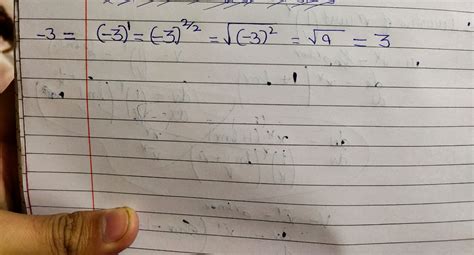 -3 = (-3)¹ = (-3)^2/2 = √(-3)² = √9 = 3